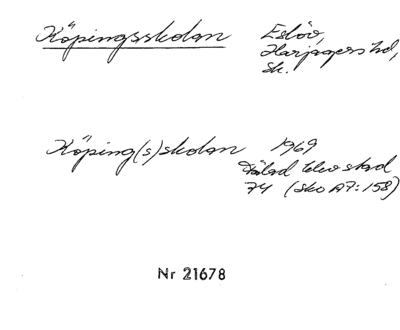 Köpingsskolan Eslöv,
Harjagers hd,
Sk.
Köping(s)skolan 1969
elev stad
74 (Sko A7:158)
Nr 21678